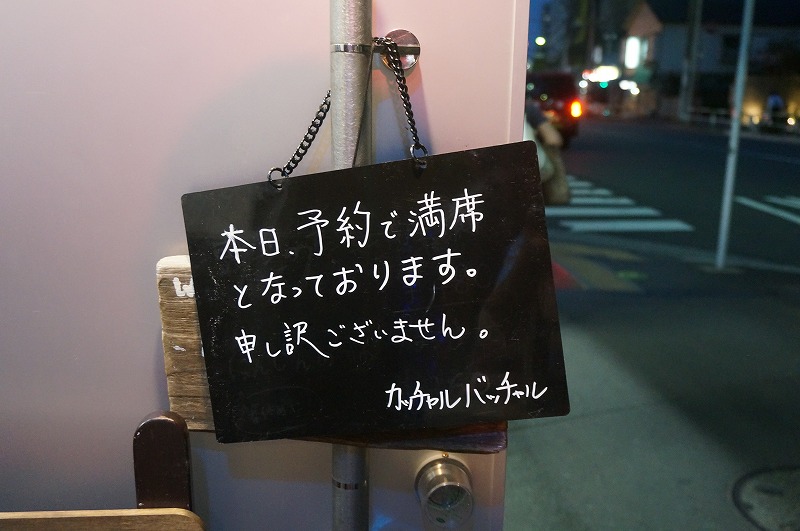 本日、予約で満席
となっております。
申し訳ございません。
カッチャルバッチャル
W